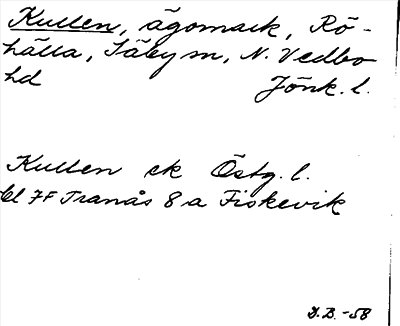 Kullen, ägomark, Rö-
hälla, Säby sn, N. Vedbo
hd Jönk. l.
Kullen ek Östg. l.
bl 7F Tranås 8 a Fiskevik
D.B. -58